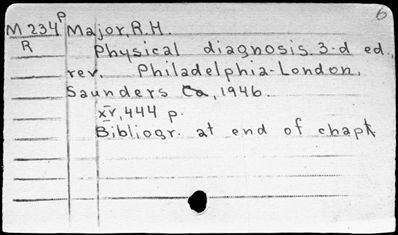 6
M 234 P Major, R.H.
R Physical diagnosis. 3-d ed.,
rev. Philadelphia-London,
Saunders Co, 1946.
XV, 444 p.
Bibliogr. at end of chapt